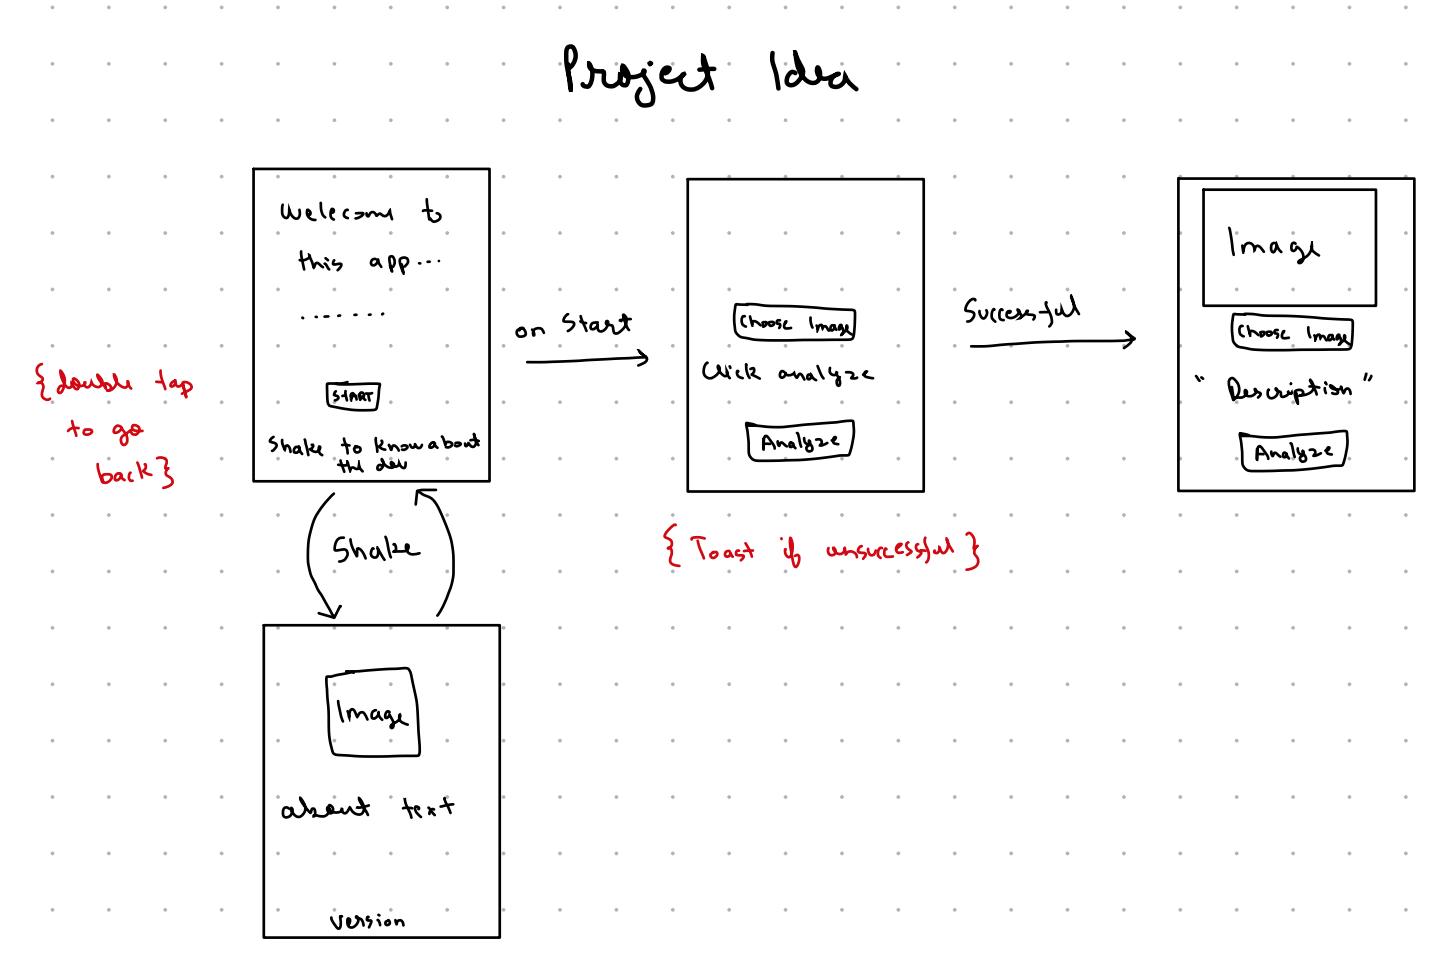 Project Idea
Welecome to
this app...
.......
START
Shake to know about
the dev
{double tap
to go
back}
on Start
Choose Image
Click analyze
Analyze
{Toast if unsuccessful}
Successful
Image
Choose Image
"Description"
Analyze
Shake
Image
about text
version